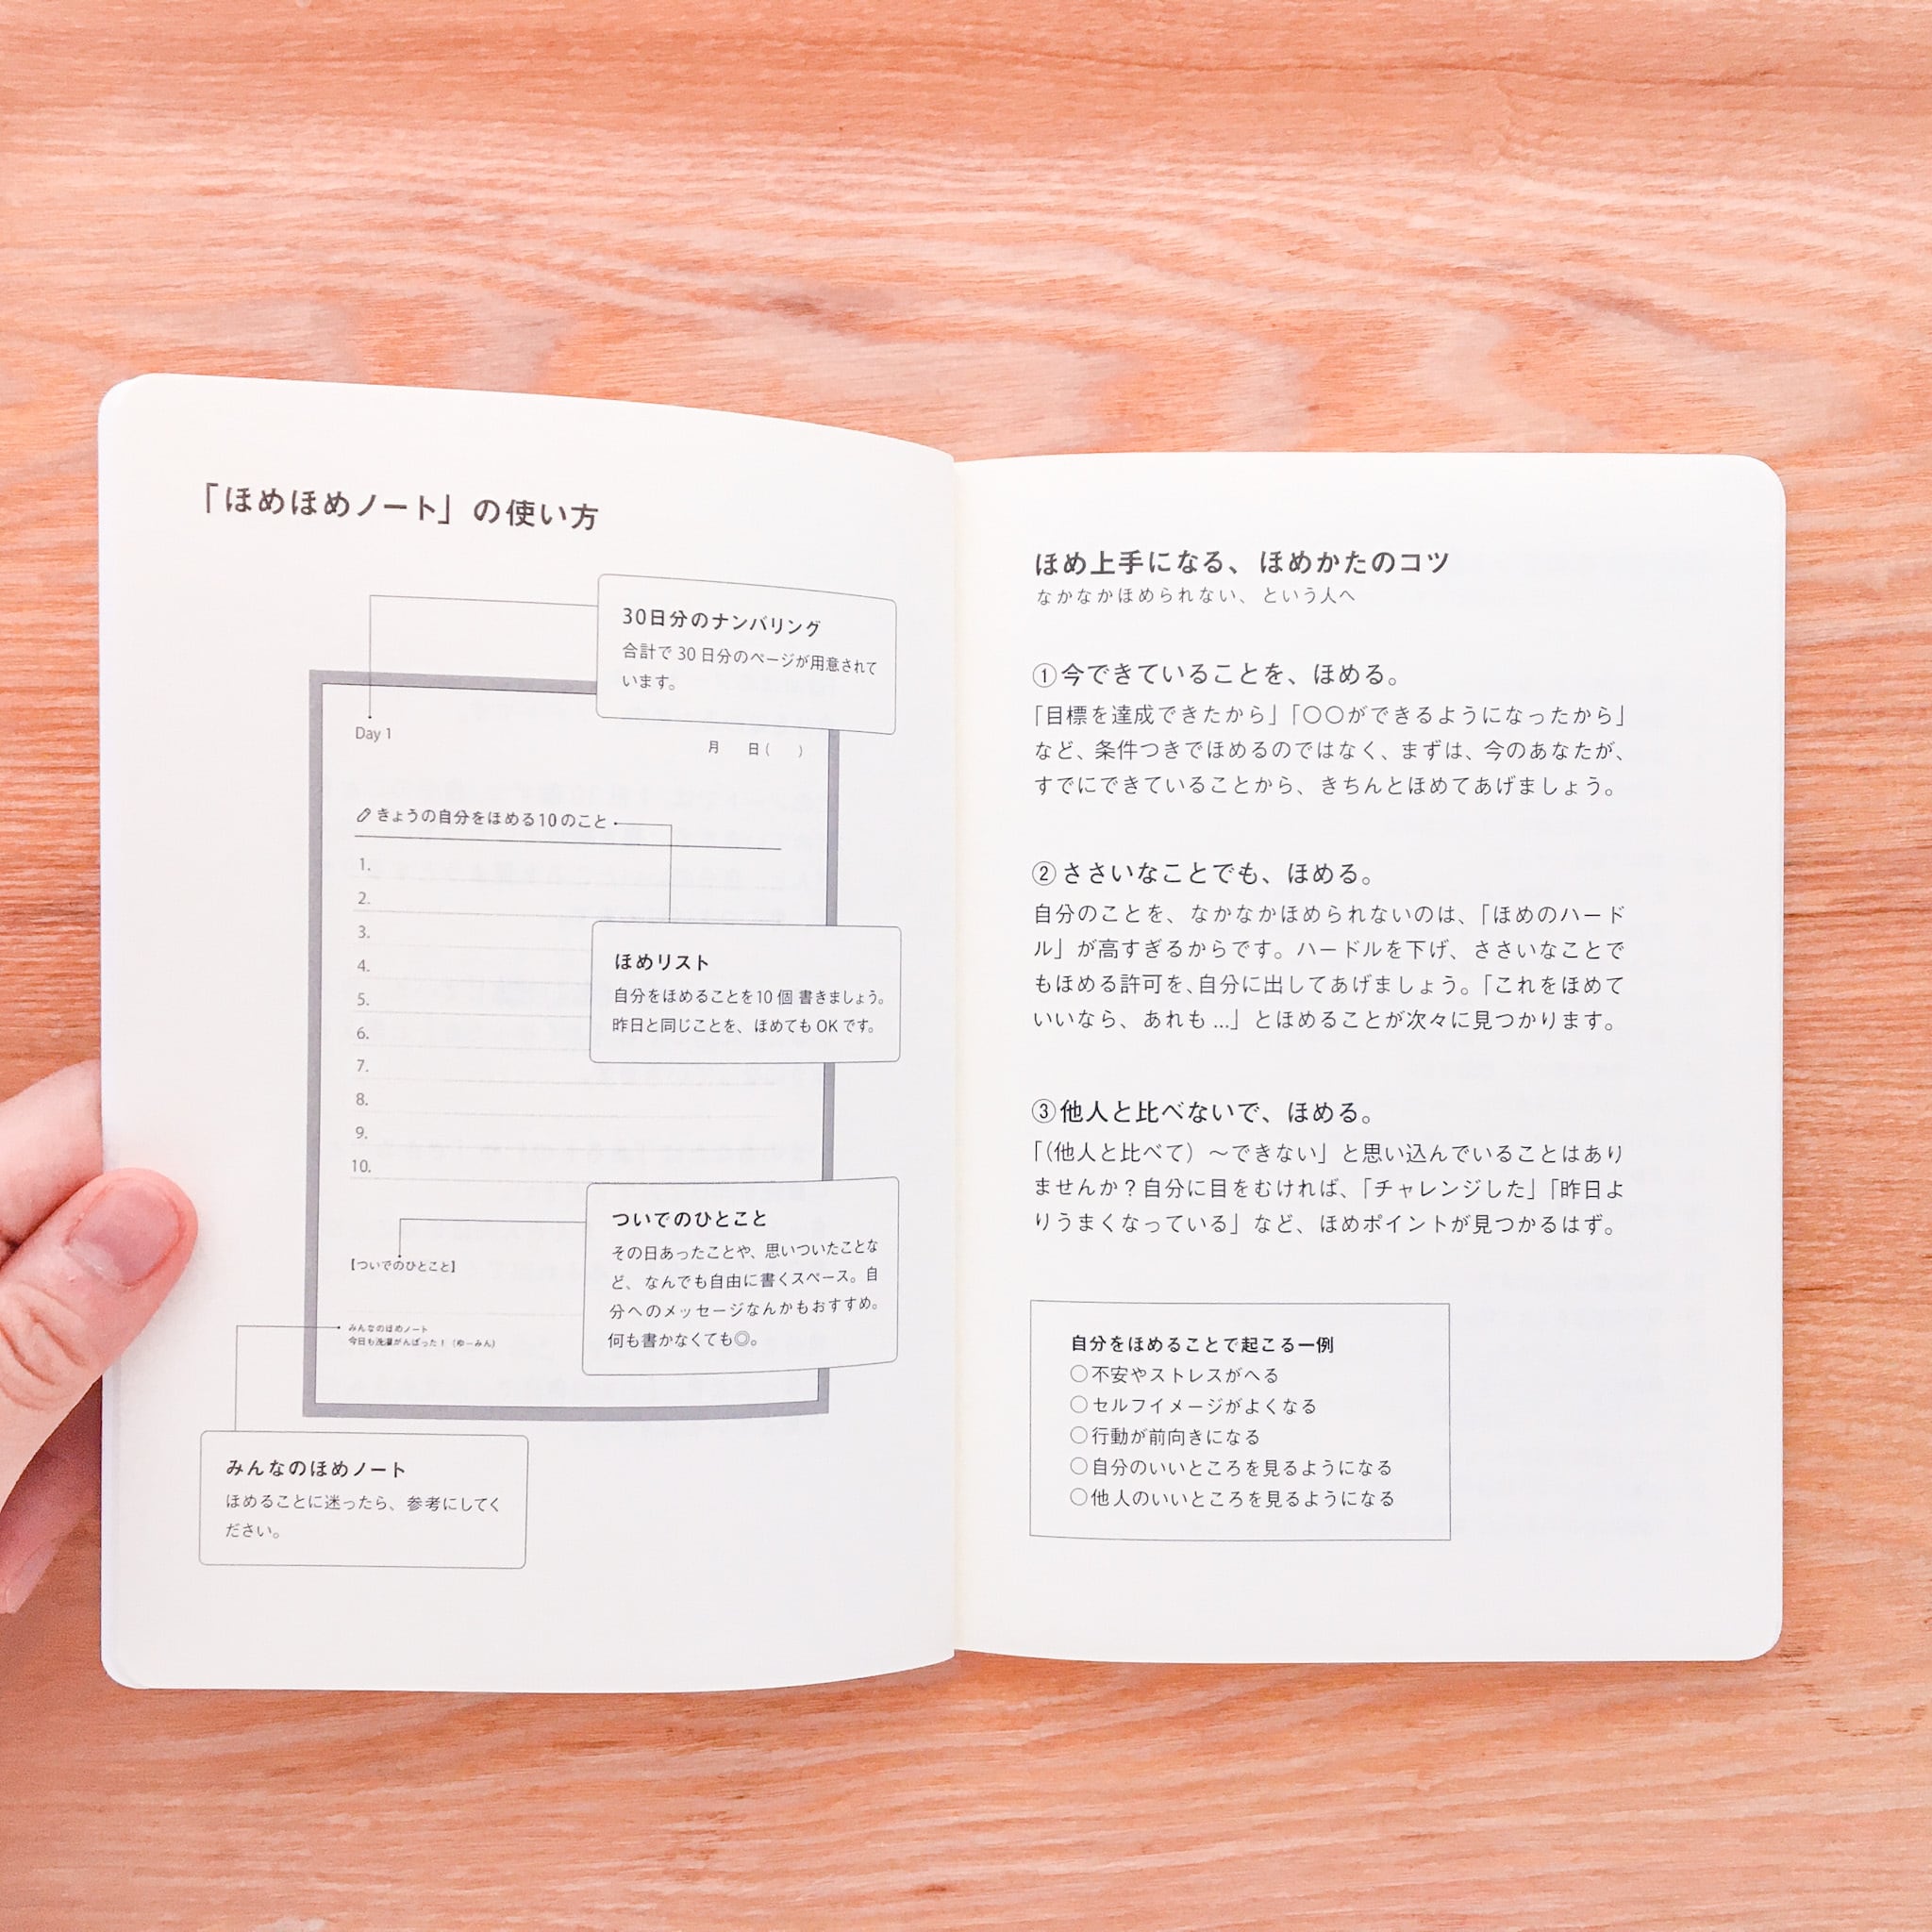 「ほめほめノート」の使い方
30日分のナンバリング
合計で 30 日分のページが用意されて
います。
Day 1
月　日（　）
きょうの自分をほめる10のこと
1.
2.
3.
4.
5.
6.
7.
8.
9.
10.
ほめリスト
自分をほめることを10個 書きましょう。
昨日と同じことを、ほめてもOKです。
ついでのひとこと
その日あったことや、思いついたことな
ど、なんでも自由に書くスペース。自
分へのメッセージなんかもおすすめ。
何も書かなくても◎。
【ついでのひとこと】
みんなのほめノート
今日も洗濯がんばった！（ゆーみん）
みんなのほめノート
ほめることに迷ったら、参考にしてく
ださい。
ほめ上手になる、ほめかたのコツ
なかなかほめられない、という人へ
①今できていることを、ほめる。
「目標を達成できたから」「〇〇ができるようになったから」
など、条件つきでほめるのではなく、まずは、今のあなたが、
すでにできていることから、きちんとほめてあげましょう。
②ささいなことでも、ほめる。
自分のことを、なかなかほめられないのは、「ほめのハード
ル」が高すぎるからです。ハードルを下げ、ささいなことで
もほめる許可を、自分に出してあげましょう。「これをほめて
いいなら、あれも...」とほめることが次々に見つかります。
③他人と比べないで、ほめる。
「（他人と比べて）～できない」と思い込んでいることはあり
ませんか？自分に目をむければ、「チャレンジした」「昨日よ
りうまくなっている」など、ほめポイントが見つかるはず。
自分をほめることで起こる一例
○不安やストレスがへる
○セルフイメージがよくなる
○行動が前向きになる
○自分のいいところを見るようになる
○他人のいいところを見るようになる